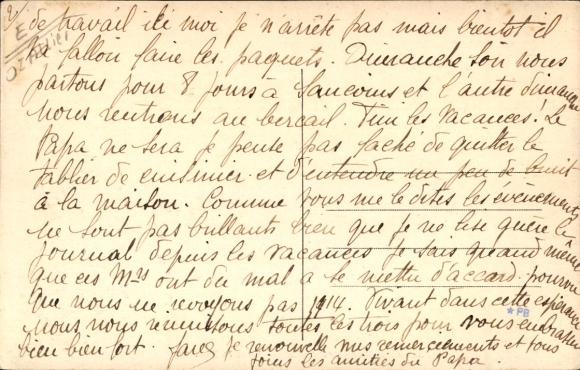 2/
E
de travail ici moi je n'arrête pas mais bientot il
va falloir faire les paquets. Dimanche soir nous
partons pour 8 jours à Sancoins et l'autre dimanche
nous rentrons au bercail. Fini les vacances! Le
Papa ne sera je pense pas faché de quitter le
tablier de cuisinier et d'entendre un peu de bruit
à la maison. Comme vous me le dites les évènements
ne sont pas brillants bien que je ne lise guère le
journal depuis les vacances je sais quand même
que ces Mrs ont du mal a se mettre d'accord. pourvu
que nous ne revoyons pas 1914. Vivant dans cette espérance
nous nous réunissons toutes les trois pour vous embrasser
bien bien fort. je renouvelle mes remerciements et vous
joins les amitiés du Papa.
*PB